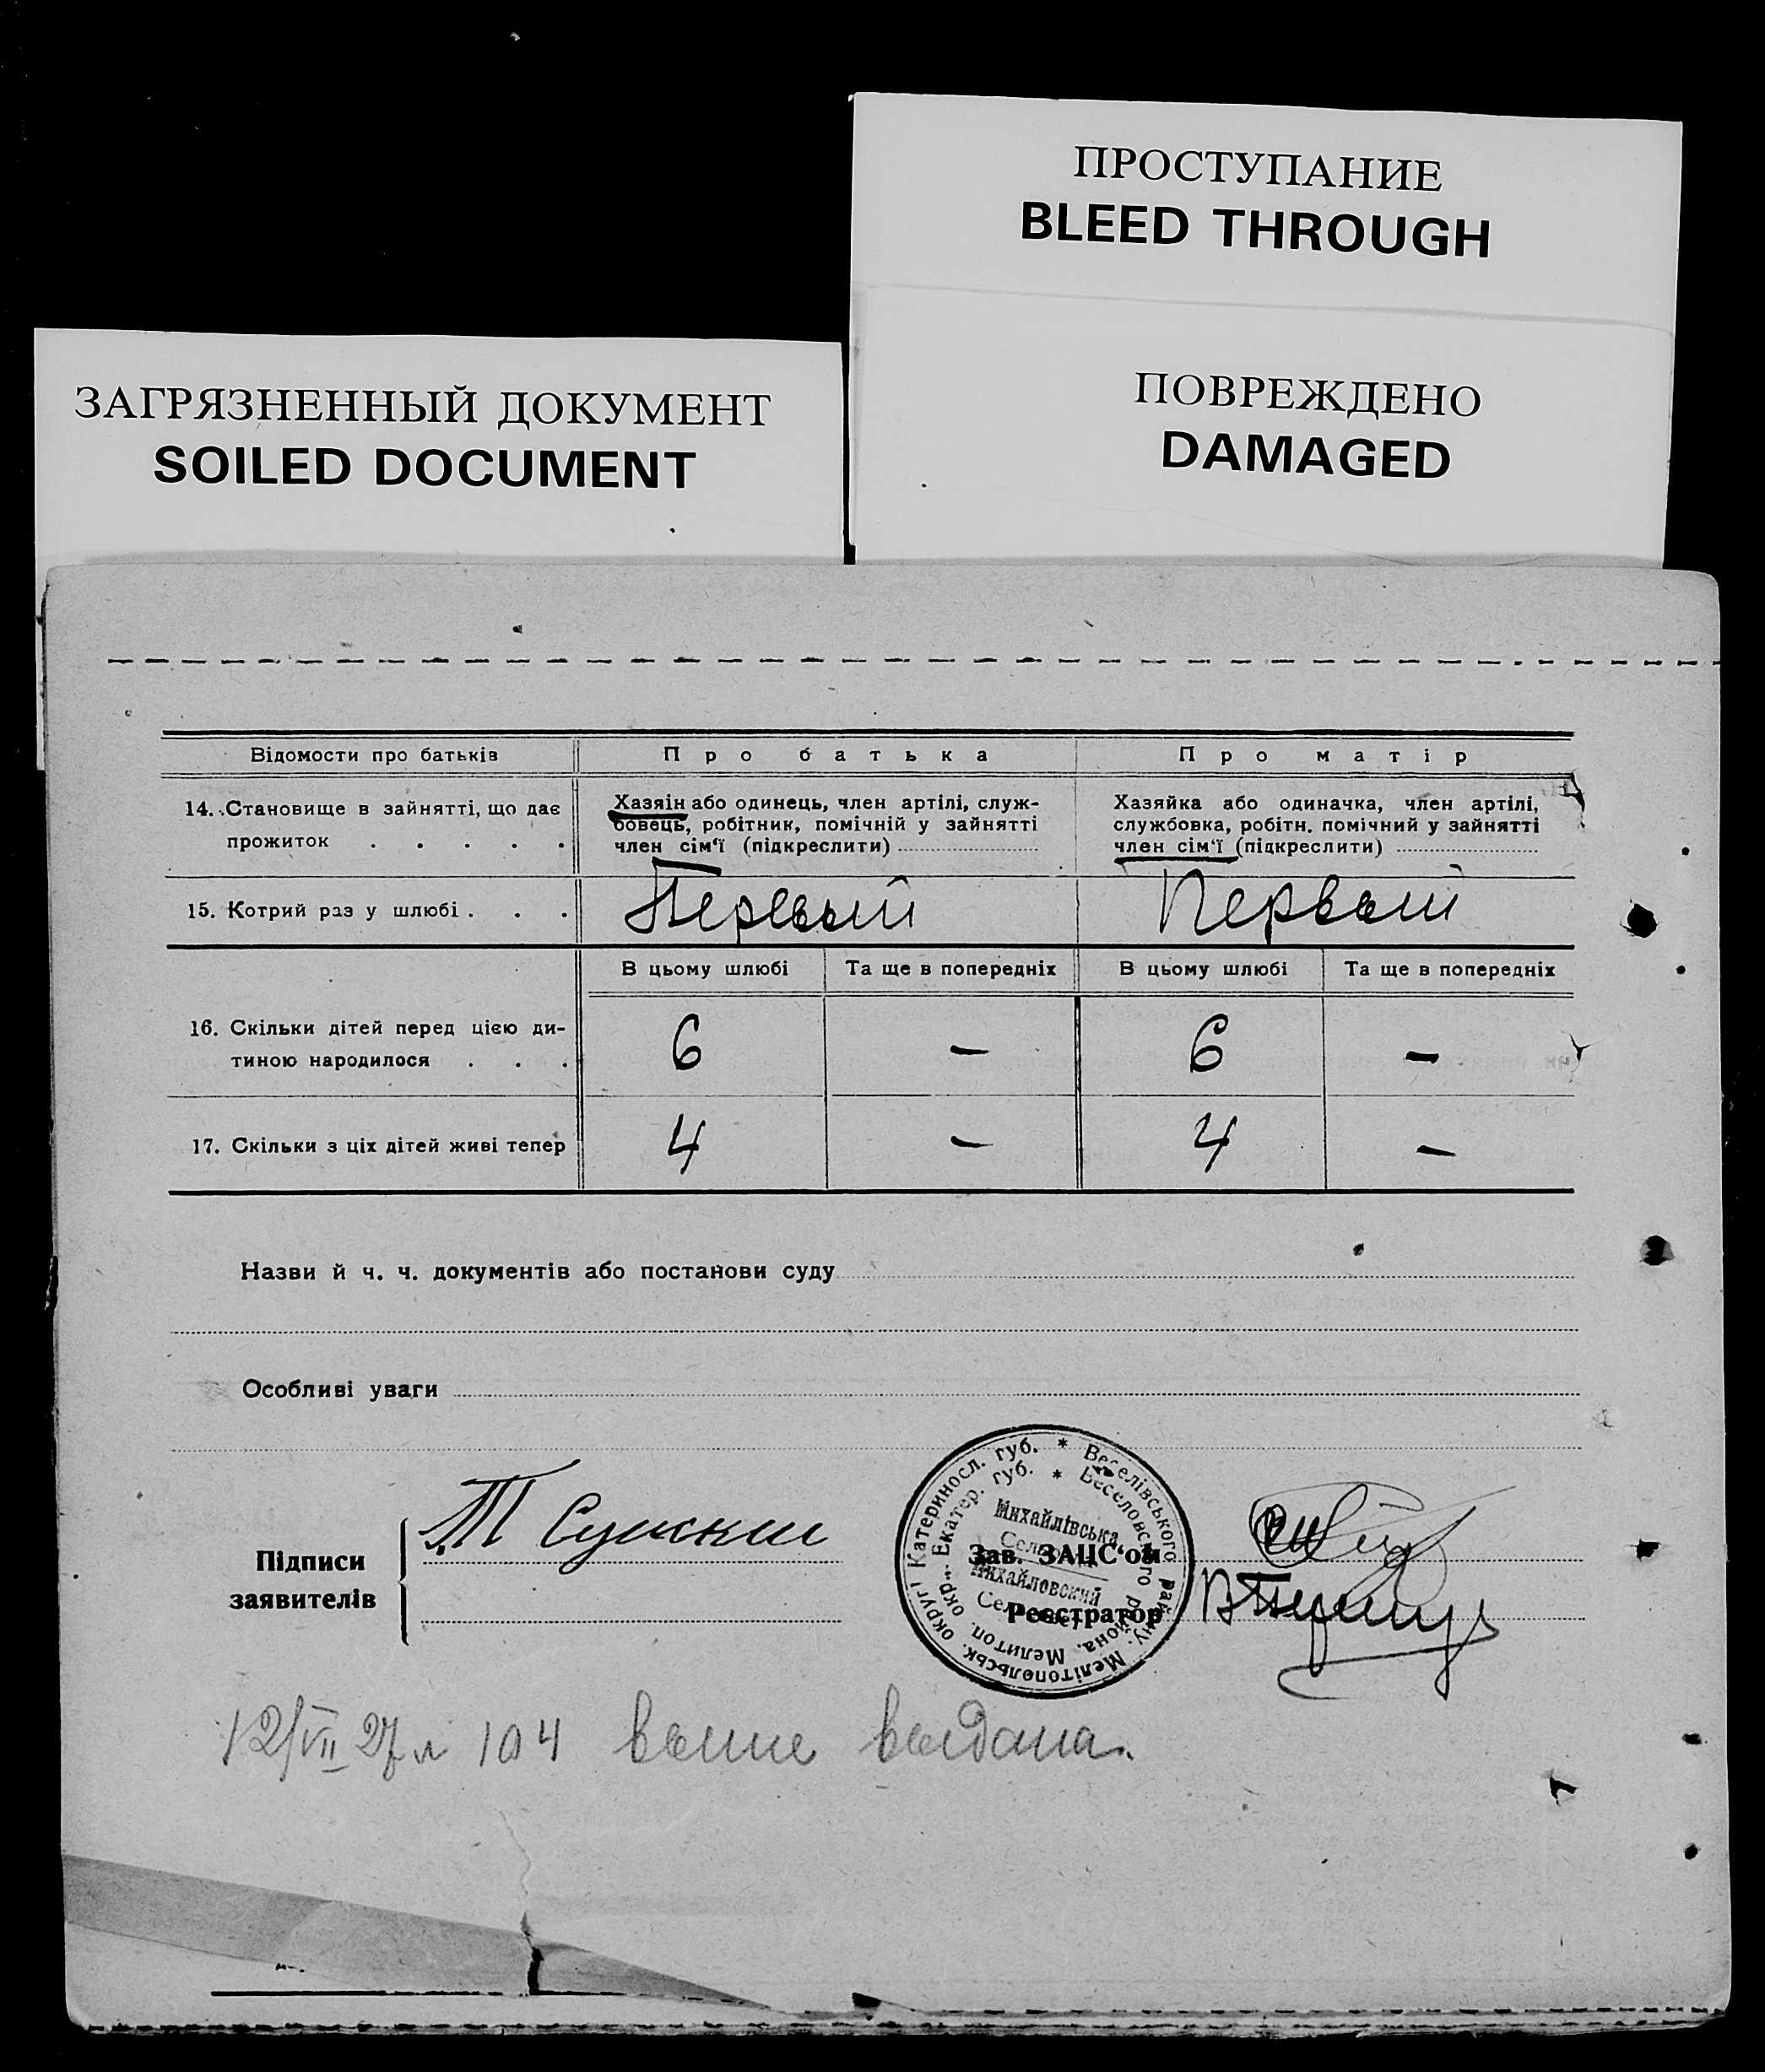 ПРОСТУПАНИЕ
BLEED THROUGH
ПОВРЕЖДЕНО
DAMAGED
ЗАГРЯЗНЕННЫЙ ДОКУМЕНТ
SOILED DOCUMENT
Відомости про батьків Про батька Про матір
14. Становище в зайнятті, що дає прожиток . . . . .
Хазяін або одинець, член артілі, служ-
бовець, робітник, помічній у зайнятті
член сім‘ї (підкреслити)
Хазяйка або одиначка, член артілі,
службовка, робітн. помічний у зайнятті
член сім‘ї (підкреслити)
15. Котрий раз у шлюбі . . . Первый Первый
В цьому шлюбі Та ще в попередніх В цьому шлюбі Та ще в попередніх
16. Скільки дітей перед цією ди-
тиною народилося . . . 6 – 6 –
17. Скільки з ціх дітей живі тепер 4 – 4 –
Назви й ч. ч. документів або постанови суду
Особливі уваги
Підписи
заявителів
Т
Зав. ЗАЦС‘ом
Реєстратор
Катериносл. губ. * Веселівського району. Мелітопольськ. округі
Екатер. губ. * Веселовского района, Мелитоп. окр.
Михайлівська
Михайловский
12/VII 27 104 выдана.